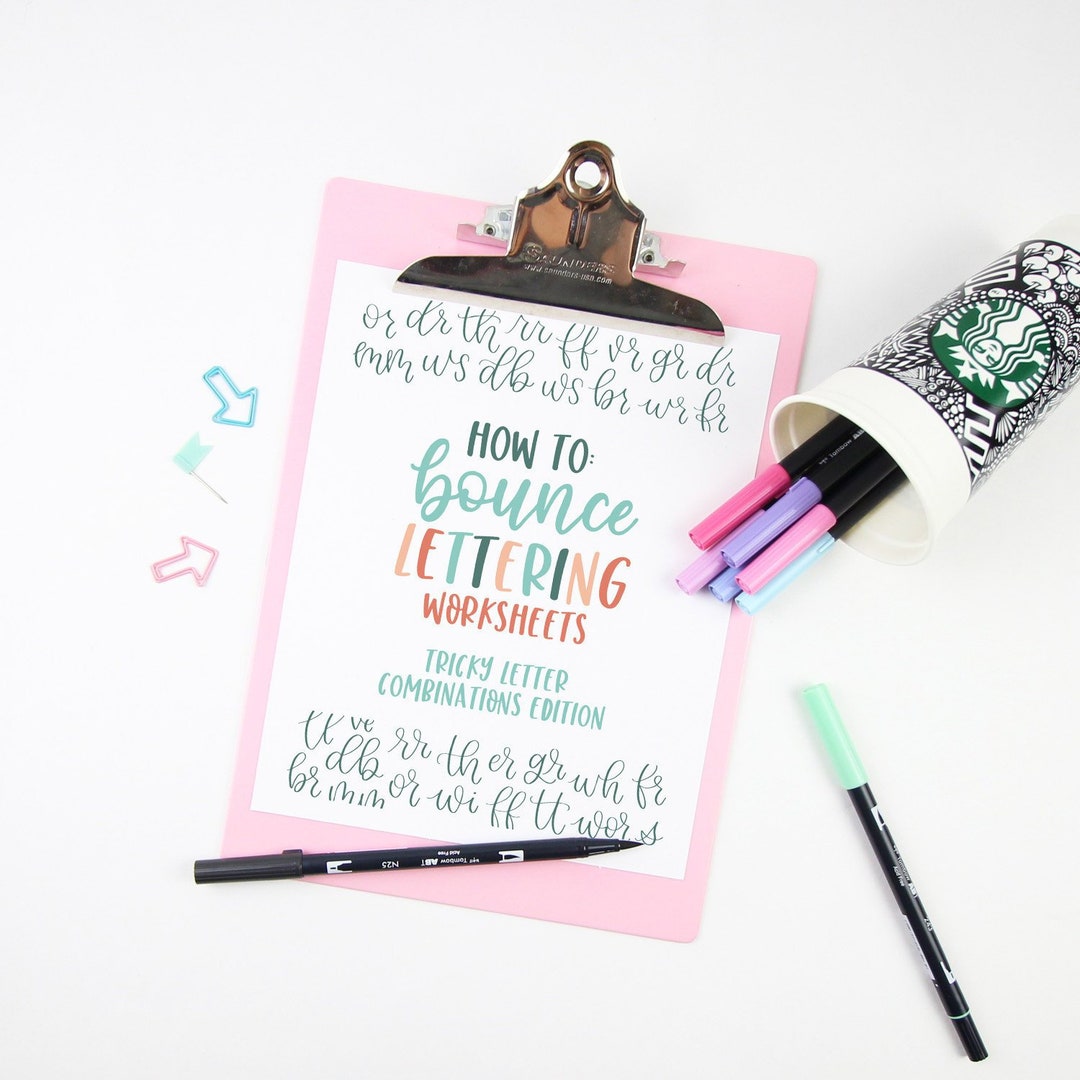 SAUNDERS
www.saunders-usa.com
or dr th rr ff vr gr dr
mm ws db ws br wr fr
HOW TO:
bounce
LETTERING
WORKSHEETS
TRICKY LETTER
COMBINATIONS EDITION
tt ve rr th er gr wh fr
br mm db or wi ff tt wor s
N25 Tombow ABT
Acid Free
Tombow